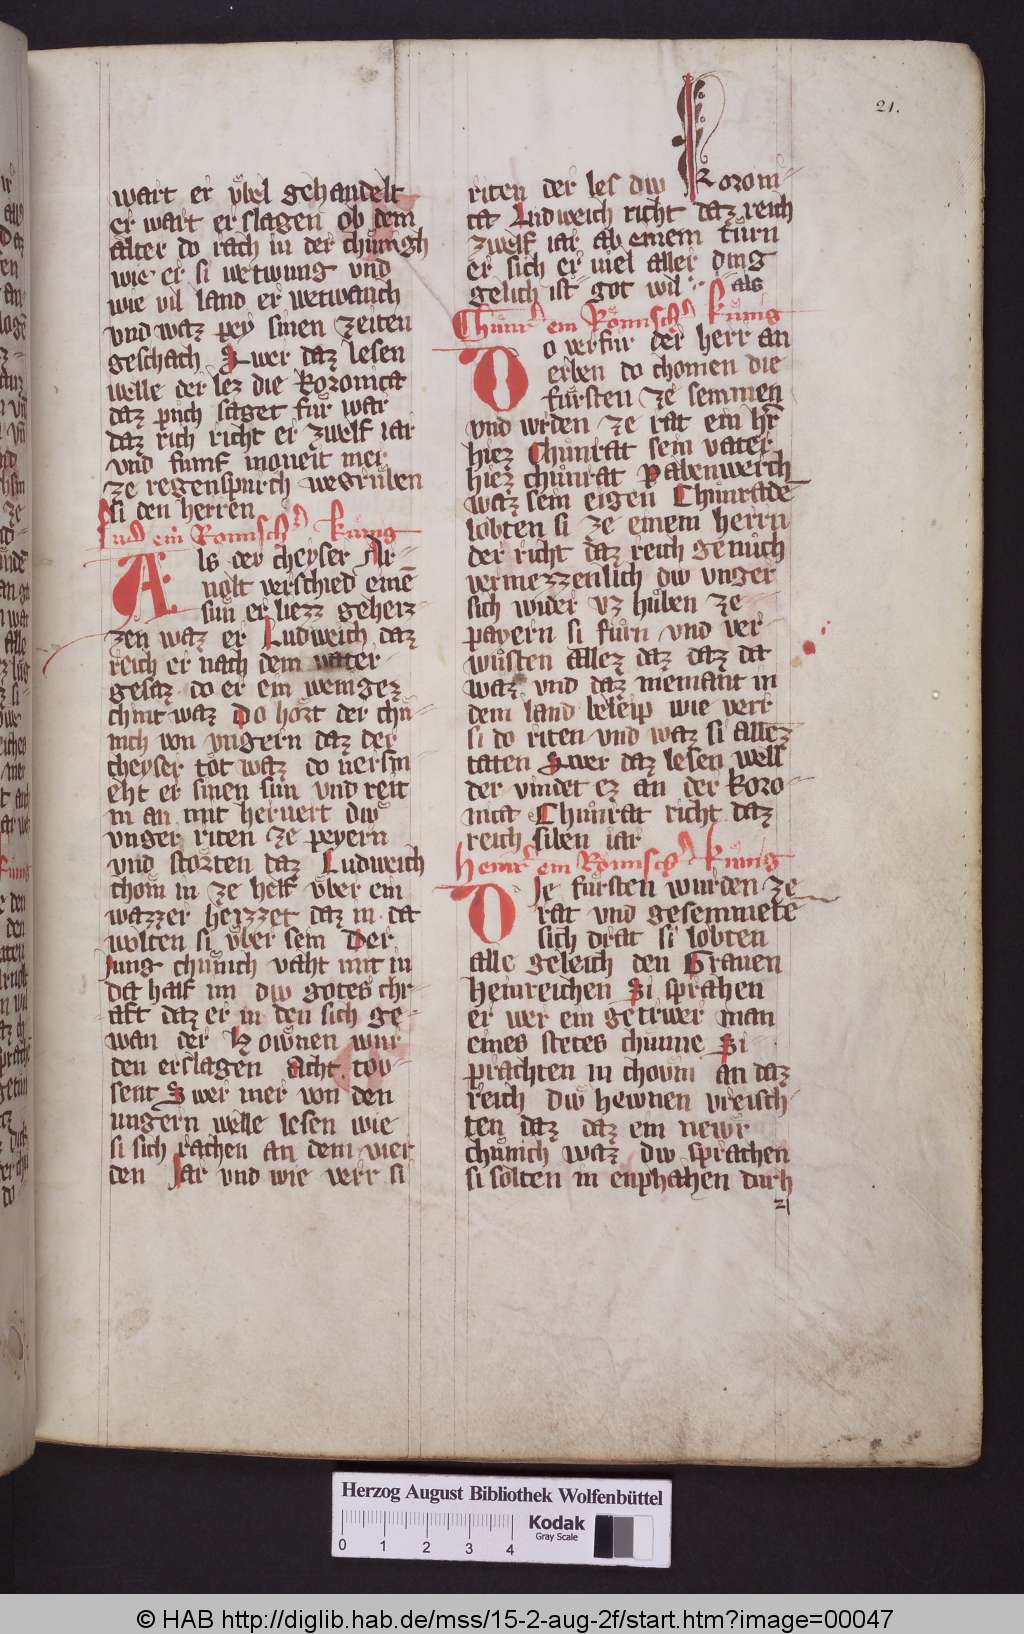 21.
wart er vͤbel gehandelt
er wart erslagen ob dem
alter do rach in der chuͤnigh
wie er si wetwung vnd
wie vil land er wetwanch
vnd waz pey sinen zeiten
geschach Swer daz lesen
welle der lez die koronica
daz puch saget fuͤr war
daz rich richt er zwelf iar
vnd funf moneit mer
ze regenspurch wegruͤben
si den herren
Lud ein Romisch kuͤng
Als der cheyser Ar-
nolt verschied einē
sun er liezz geherz-
zen waz er Ludweich daz
reich er nach dem vater
gesaz do er ein weingez
chint waz Do hort der chuͤ-
nich von vngern daz der
cheyser tot waz do versm
eht er sinen sun vnd reit
in an mit hervert diw
vnger riten ze peyern
vnd storten daz Ludweich
chom in ze helf vͤber ein
wazzer heizzet daz in da
wolten si vͤber sein Der
Jung chuͤnich vaht mit in
da half im diw gotes chr
aft daz er in den sich ge-
wan der Howͤnen wur
den erslagen acht tov
sent Swer mer von den
ungern welle lesen wie
si sich rachen an dem vier
den Jar vnd wie verr si
riten der les diw koroni-
ca Ludweich richt daz reich
zwelf iar ab einem turn
er sich er viel aller ding
gelich ist got wil als
Chuͤnr ein Roͤmisch kuͤnig
Do verfur der herr an
erben do chomen die
fuͤrsten ze semmen
vnd wrden ze rat ein hr
hiez Chuͤnrat sein vater
hiez chuͤnrat Pabenwerch
waz sein eigen Chuͤnrade
lobten si ze einem herrn
der richt daz reich genuͤch
vermezzenlich diw vnger
sich wider vz huͤben ze
payern si fuͤrn vnd ver-
wuͤsten allez daz daz da
waz vnd daz niemant in
dem land beleip wie verr
si do riten vnd waz si allez
taten Swer daz lesen well
der vindet ez an der koro-
nica Chuͤnrat richt daz
reich siben iar
Heinr ein Roͤmisch kuͤnig
Die fuͤrsten wurden ze
rat vnd gesemmete
sich drat si lobten
alle geleich den Grauen
Heinreichen Si sprahen
er wer ein getrwer man
eines stetes chunne Si
prachten in chovm an daz
reich diw hewnen vreisch-
ten daz daz ein newr
chuͤnich waz diw sprachen
si solten in enphahen durh
21
Herzog August Bibliothek Wolfenbüttel
0 1 2 3 4
Kodak
Gray Scale
© HAB http://diglib.hab.de/mss/15-2-aug-2f/start.htm?image=00047